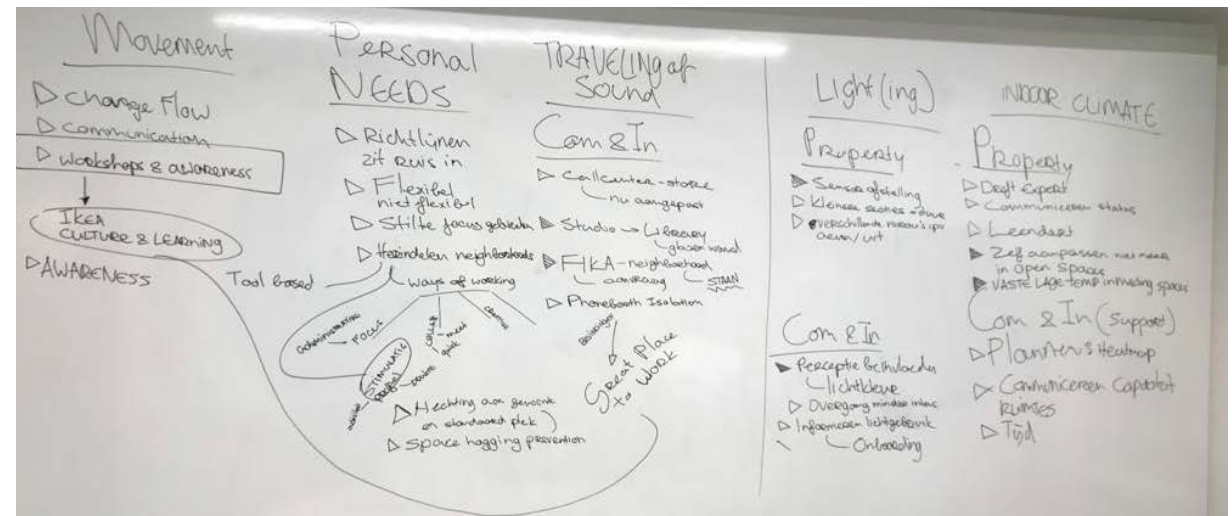 Movement
▷ change Flow
▷ Communication
▷ workshops & awareness
IKEA
CULTURE & LEARNING
▷ AWARENESS
Personal
NEEDS
▷ Richtlijnen
zit ruis in
▷ Flexibel
niet flexibel
▷ Stilte focus gebieden
▷ Herindelen neighborhoods
Tool based
ways of working
Focus
COLLAB
meet
quick
STIMULATIE
▷ Hechting aan gewoonte
en standaard plek)
▷ Space hogging prevention
TRAVELING of
Sound
Com & In
▷ Callcenter-store
nu aangepast
▷ Studio → Library
glazen wand
▷ FIKA - neighborhood
STAAN
▷ Phonebooth Isolation
Great Place
to WORK
Light (ing)
Property
▷ Sensor afstelling
▷ Kleinere zones
▷ verschillende niveau's ipv
aan/uit
Com & In
▷ Perceptie beïnvloeden
lichtkleur
▷ Overgang minder intens
▷ Informeren lichtgebruik
Onboarding
INDOOR CLIMATE
Property
▷ Expert
▷ Communiceren status
▷ Leendert
▷ Zelf aanpassen niet meer
in Open Spaces
▷ VASTE LAGE temp in meeting spaces
Com & In (Support)
▷ Heatmap
▷ Communiceren Capaciteit
Ruimtes
▷ Tijd